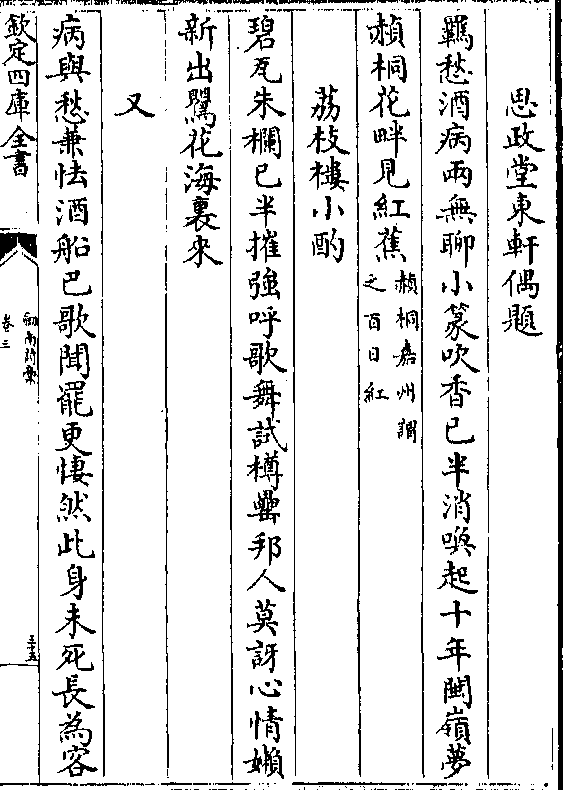 思政堂東軒偶題
羈愁酒病兩無聊小篆吹香已半消喚起十年閩嶺夢
赬桐花畔見紅蕉赬桐嘉州謂
之百日紅
荔枝樓小酌
碧瓦朱欄已半摧強呼歌舞試樽罍邦人莫訝心情嬾
新出鶯花海裏來
又
病與愁兼怯酒船巴歌聞罷更悽然此身未死長為客
欽定四庫全書
劍南詩稾
卷三
三十五